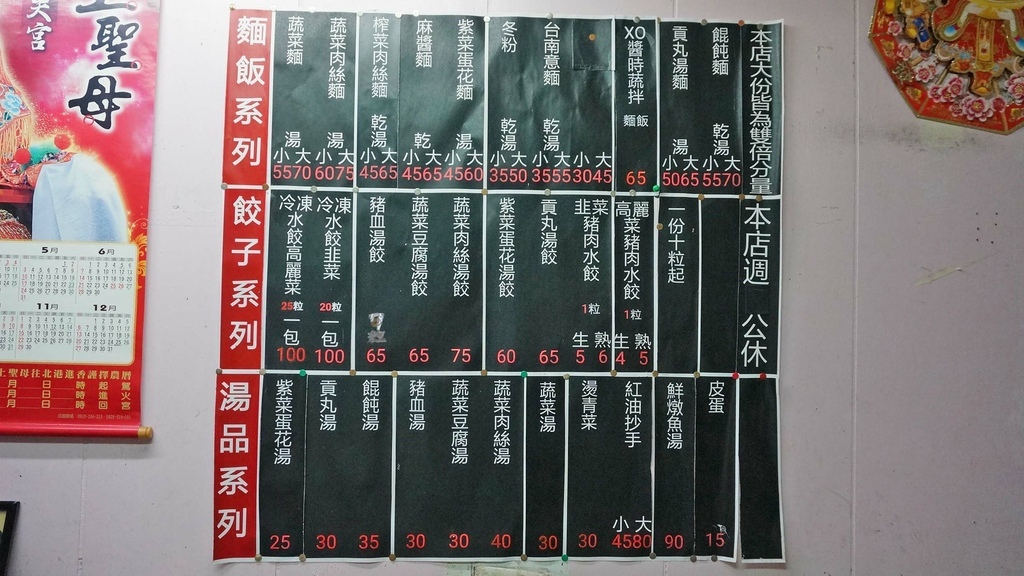 聖母
天宮
5月
6月
11月
12月
上聖母往北港進香謹擇農曆
月 日 時 起 駕
月 日 時 進 火
月 日 時 回 宮
本店大份皆為雙倍分量
餛飩麵 乾湯 小55 大70
貢丸湯麵 湯 小50 大65
XO醬時蔬拌 麵飯 65
小30 大45
台南意麵 乾湯 小35 大55
冬粉 乾湯 小35 大50
紫菜蛋花麵 湯 小45 大60
麻醬麵 乾 小45 大65
榨菜肉絲麵 乾湯 小45 大65
蔬菜肉絲麵 湯 小60 大75
蔬菜麵 湯 小55 大70
麵飯系列
本店週 公休
一份十粒起
高麗菜豬肉水餃 1粒 生4 熟5
韭菜豬肉水餃 1粒 生5 熟6
貢丸湯餃 65
紫菜蛋花湯餃 60
蔬菜肉絲湯餃 75
蔬菜豆腐湯餃 65
豬血湯餃 65
冷凍水餃韭菜 20粒 一包 100
冷凍水餃高麗菜 25粒 一包 100
餃子系列
皮蛋 15
鮮燉魚湯 90
紅油抄手 小45 大80
燙青菜 30
蔬菜湯 30
蔬菜肉絲湯 40
蔬菜豆腐湯 30
豬血湯 30
餛飩湯 35
貢丸湯 30
紫菜蛋花湯 25
湯品系列